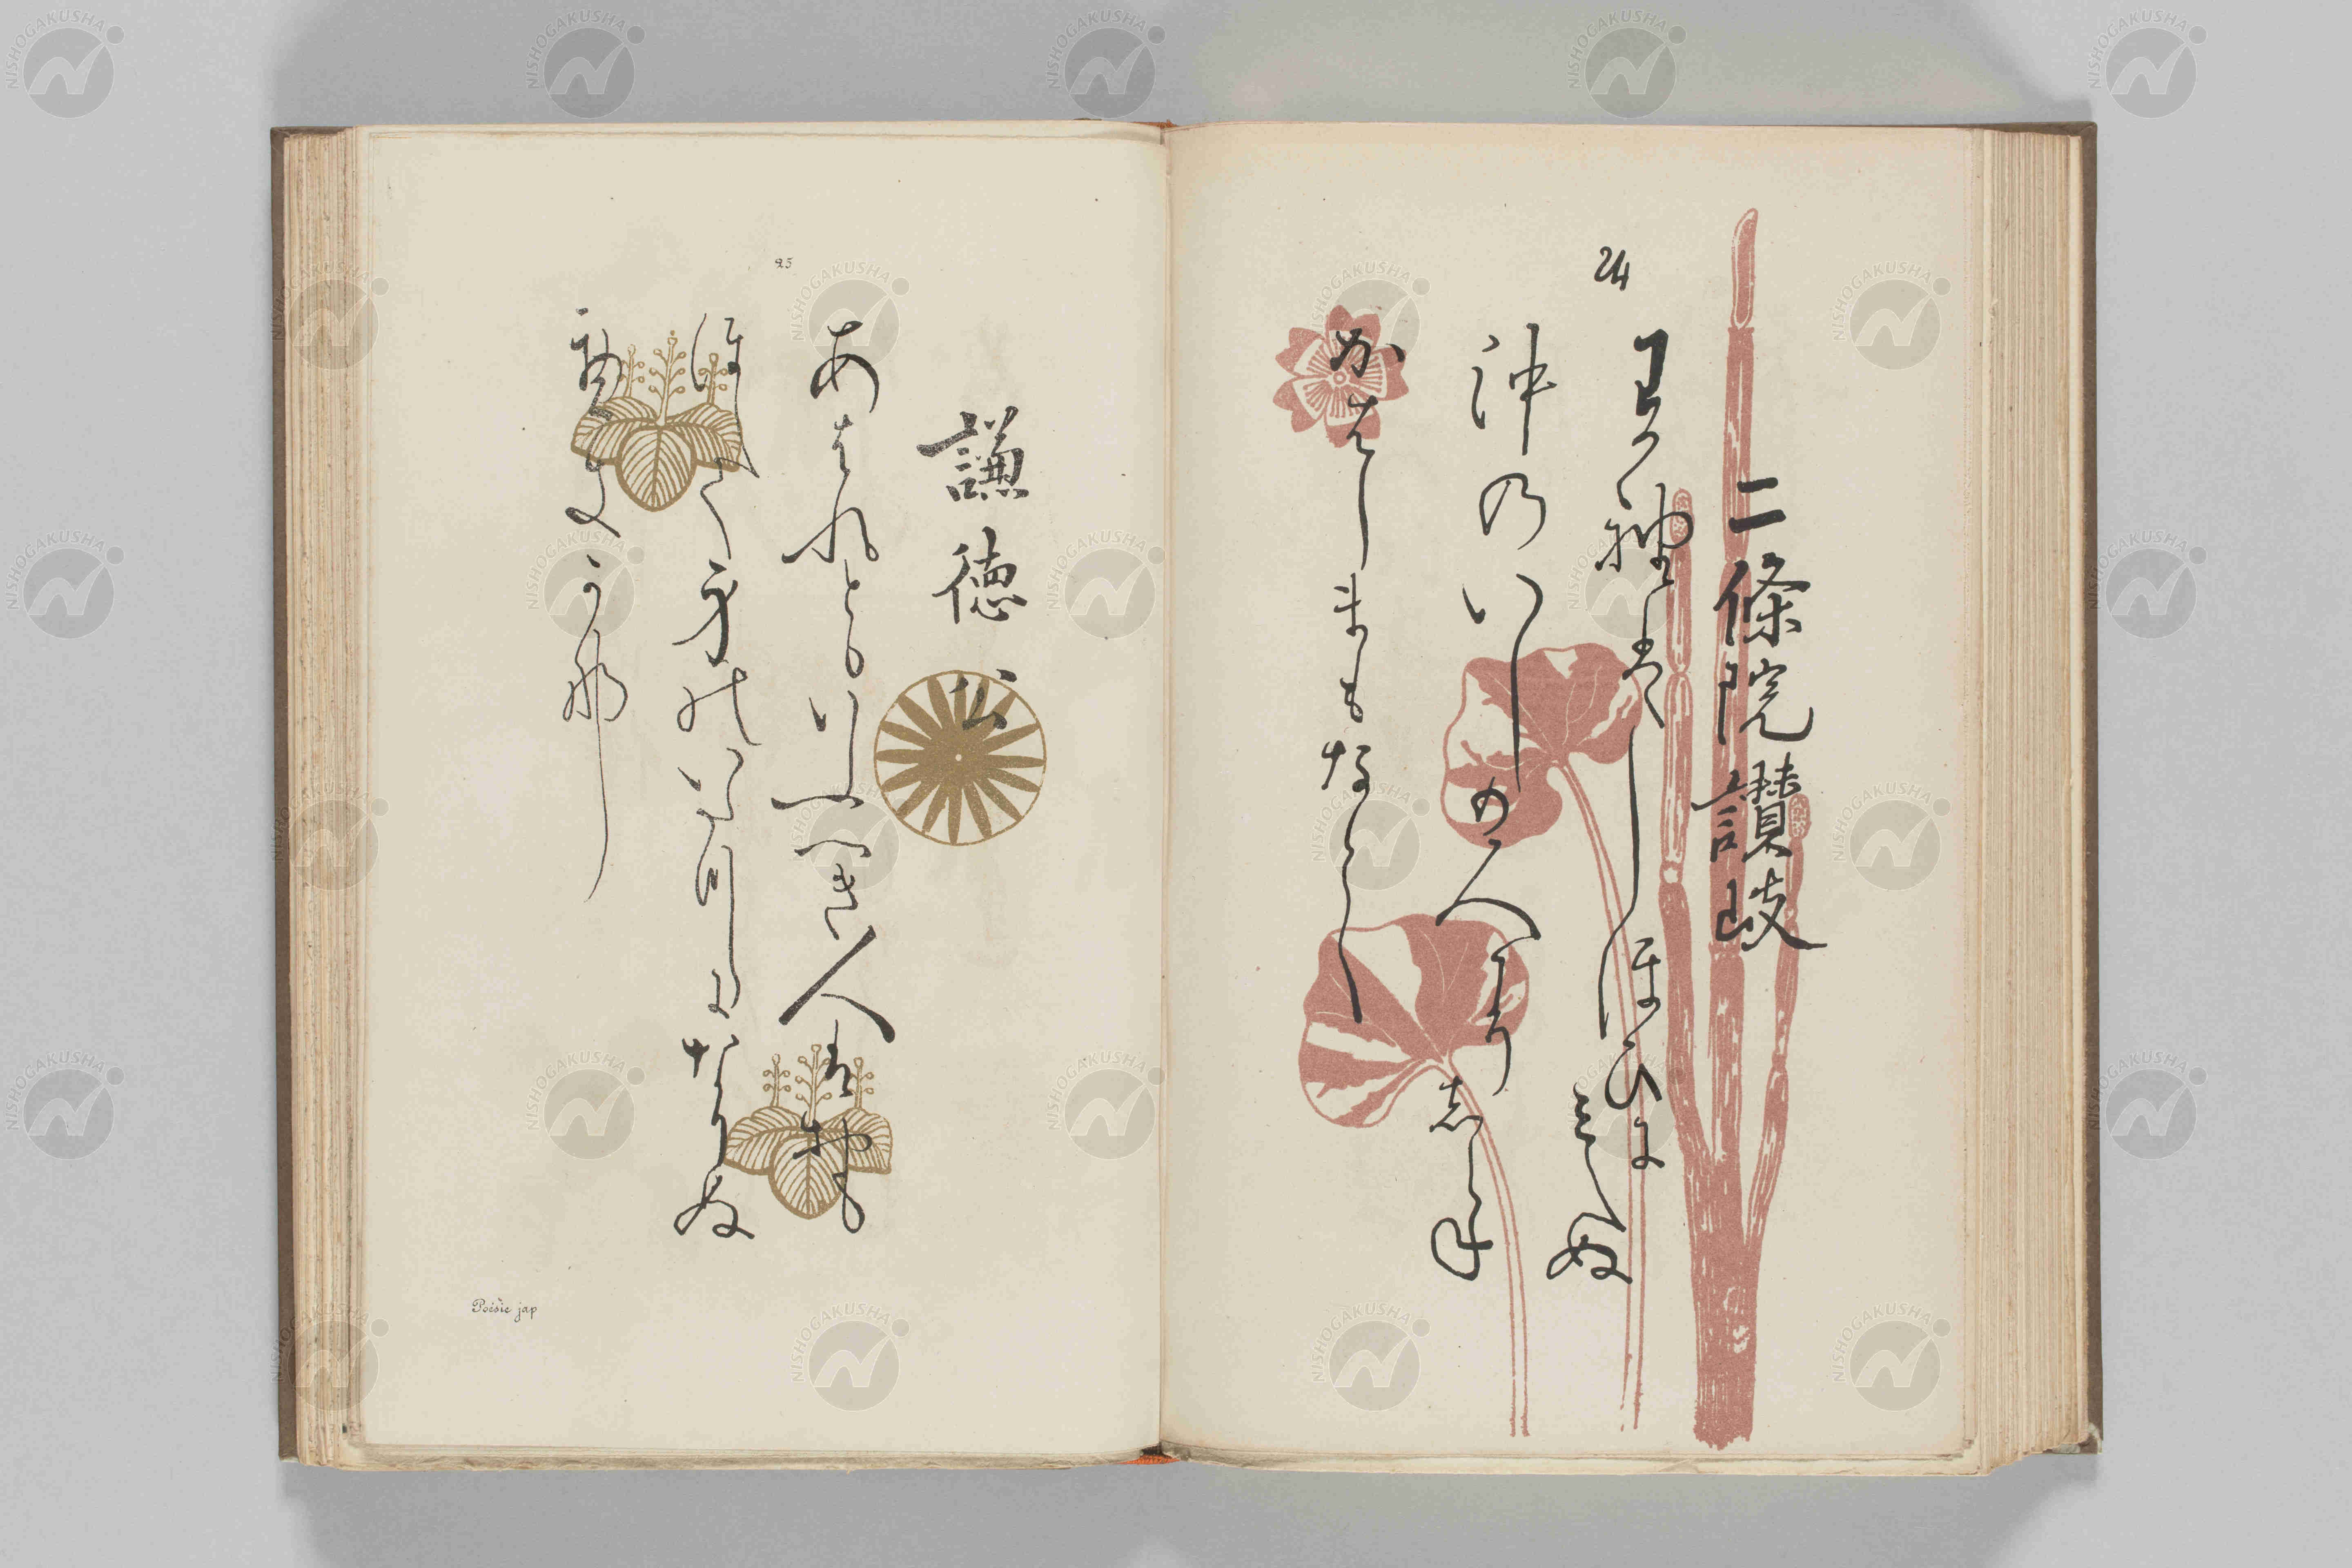 24
二條院讃岐
わか袖はしほひにみえぬ
沖のいしの人こそしらね
かはくまもなし
25
謙徳公
あはれともいふへき人はおも
ほえて身のいたつらになりぬ
へきかな
Poésie jap
NISHOGAKUSHA